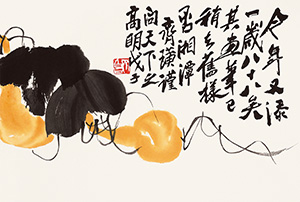 今年又添
一歲八十八矣
其畫筆已
稍去舊樣
否湘潭
齊璜謹
問天下之
高明我子